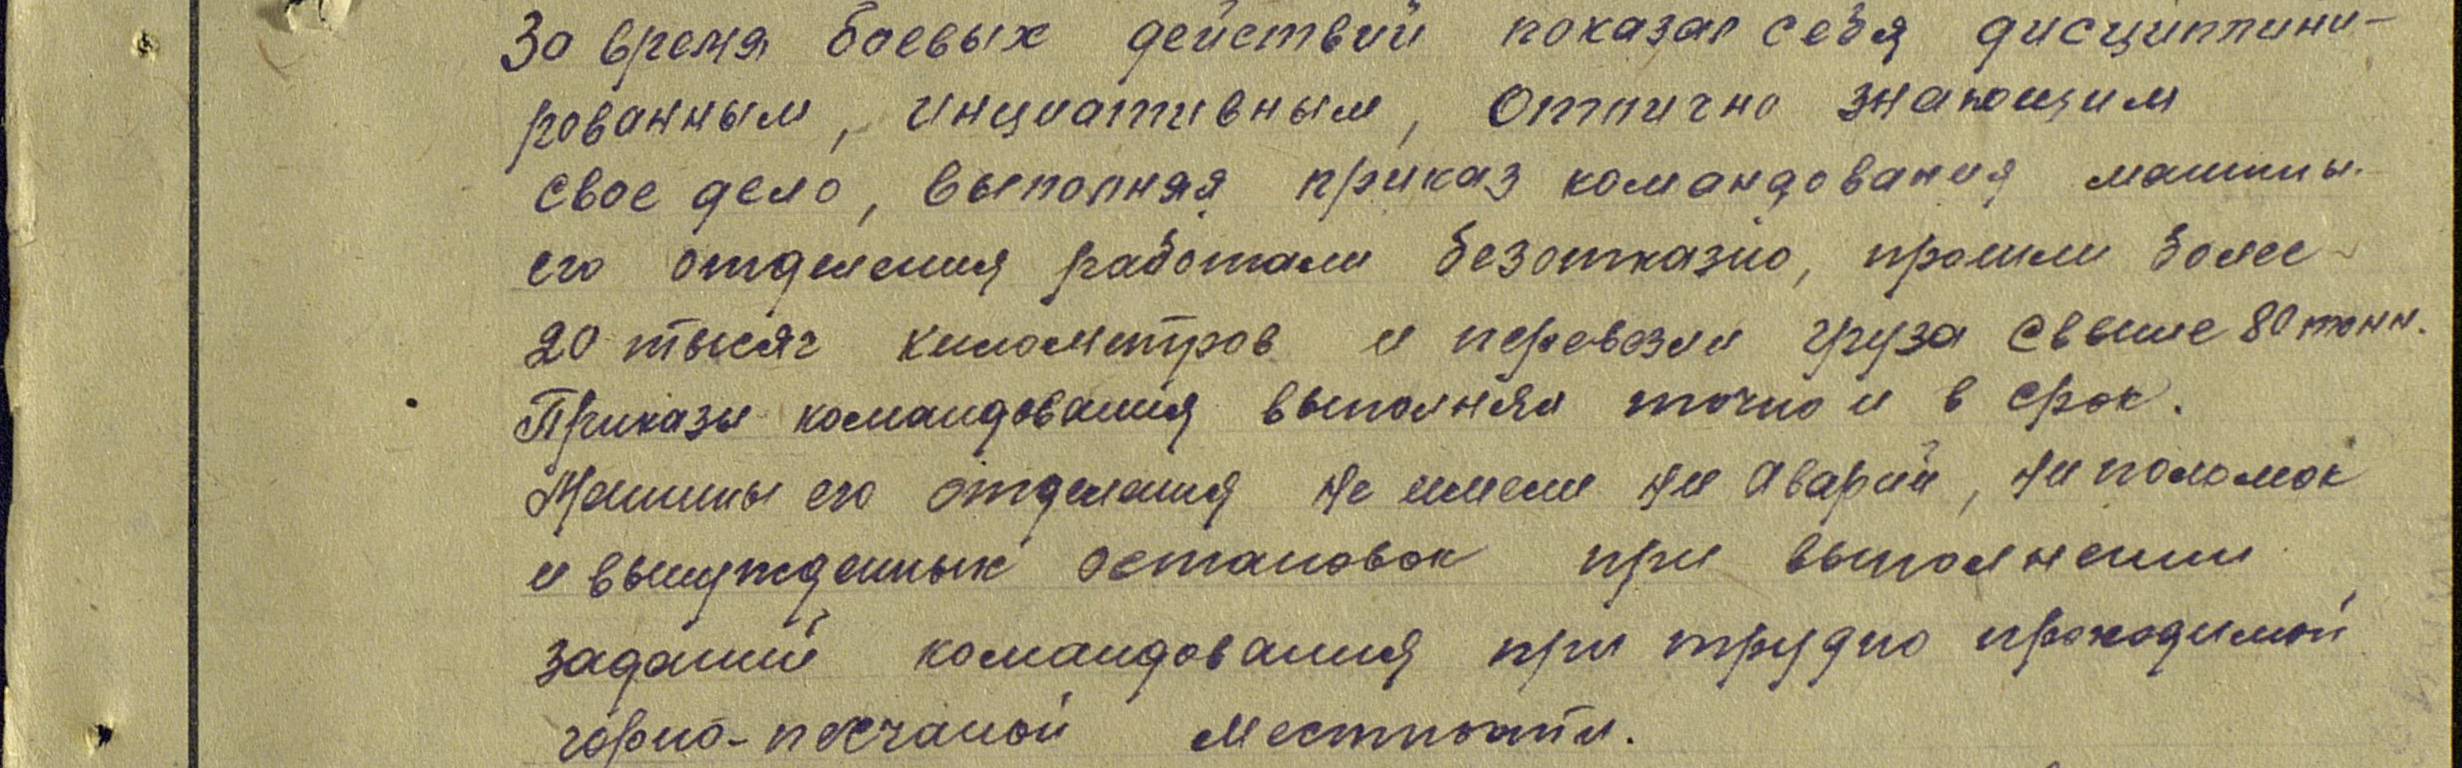 За время боевых действий показал себя дисциплини-
рованным, инциативным, отлично знающим
свое дело, выполняя приказ командования машины
его отделения работали безотказно, прошли более
20 тысяч километров и перевезли груза свыше 80 тонн.
Приказы командования выполнял точно и в срок.
Машины его отделения не имели ни аварий, ни поломок
и вынужденных остановок при выполнении
заданий командования при трудно проходимой
горно-песчаной местности.